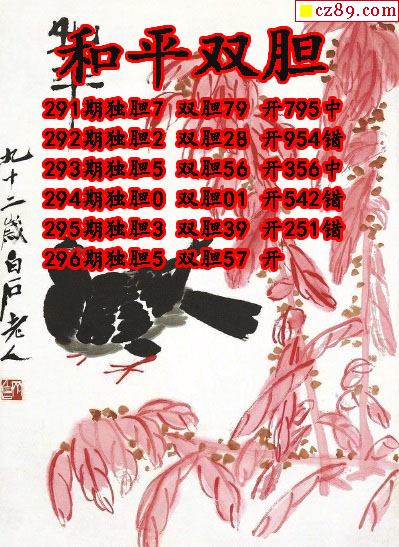 cz89.com
和平双胆
291期独胆7 双胆79 开795中
292期独胆2 双胆28 开954错
293期独胆5 双胆56 开356中
294期独胆0 双胆01 开542错
295期独胆3 双胆39 开251错
296期独胆5 双胆57 开
九十二岁白石老人